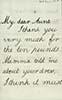 My dear Aunt
I thank you
very much for
the ten pounds.
Mamma told me
about your dear,
I think it must